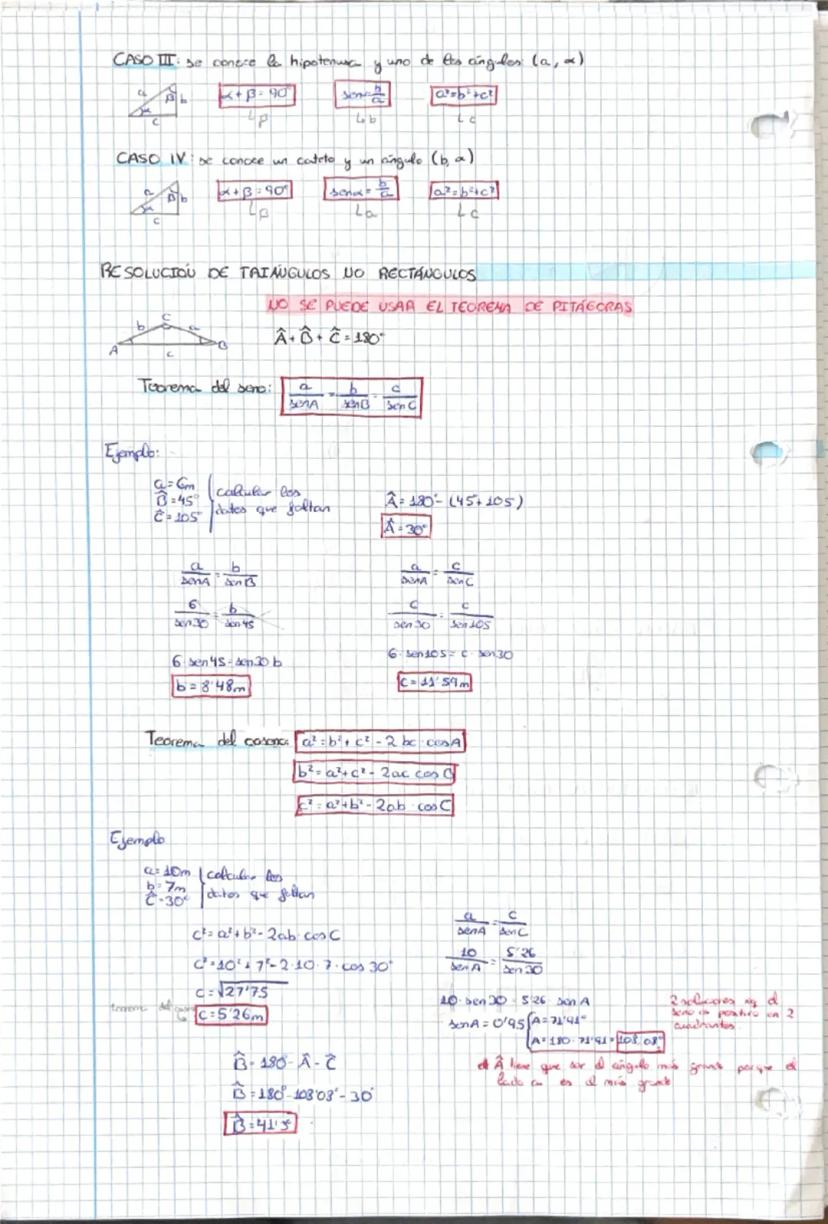 CASO III: se conoce la hipotenusa y uno de los ángulos (a, α)
a β b α c
α + β = 90° senα = b/a a² = b² + c²
↳β ↳b ↳c
CASO IV: se conoce un cateto y un ángulo (b, α)
a β b α c
α + β = 90° senα = b/a a² = b² + c²
↳β ↳a ↳c
RESOLUCIÓN DE TRIÁNGULOS NO RECTÁNGULOS
NO SE PUEDE USAR EL TEOREMA DE PITÁGORAS
A b C a B c
Â + B̂ + Ĉ = 180°
Teorema del seno: a/senA = b/senB = c/senC
Ejemplo:
a = 6m
B̂ = 45°
Ĉ = 105°
calcular los
datos que faltan
Â = 180° - (45 + 105)
Â = 30°
a/senA = b/senB
6/sen30 = b/sen45
6 · sen45 = sen30 b
b = 8'48m
a/senA = c/senC
c/sen30 = c/sen105
6 · sen105 = c · sen30
c = 11'59m
Teorema del coseno: a² = b² + c² - 2bc · cosA
b² = a² + c² - 2ac cos C
c² = a² + b² - 2ab · cosC
Ejemplo
a = 10m
b = 7m
Ĉ = 30°
calcular los
datos que faltan
c² = a² + b² - 2ab · cosC
c² = 10² + 7² - 2 · 10 · 7 · cos 30°
c = √27'75
teorema del
c = 5'26m
a/senA = c/senC
10/senA = 5'26/sen30
10 · sen30 = 5'26 senA
senA = 0'95
A = 71'91°
A = 180 - 71'91 = 108'08°
2 soluciones el
seno es positivo en 2
cuadrantes
el Â tiene que ser el ángulo más grande porque el
lado a es el más grande
B̂ = 180 - Â - Ĉ
B̂ = 180° - 108'08° - 30°
B̂ = 41'9°